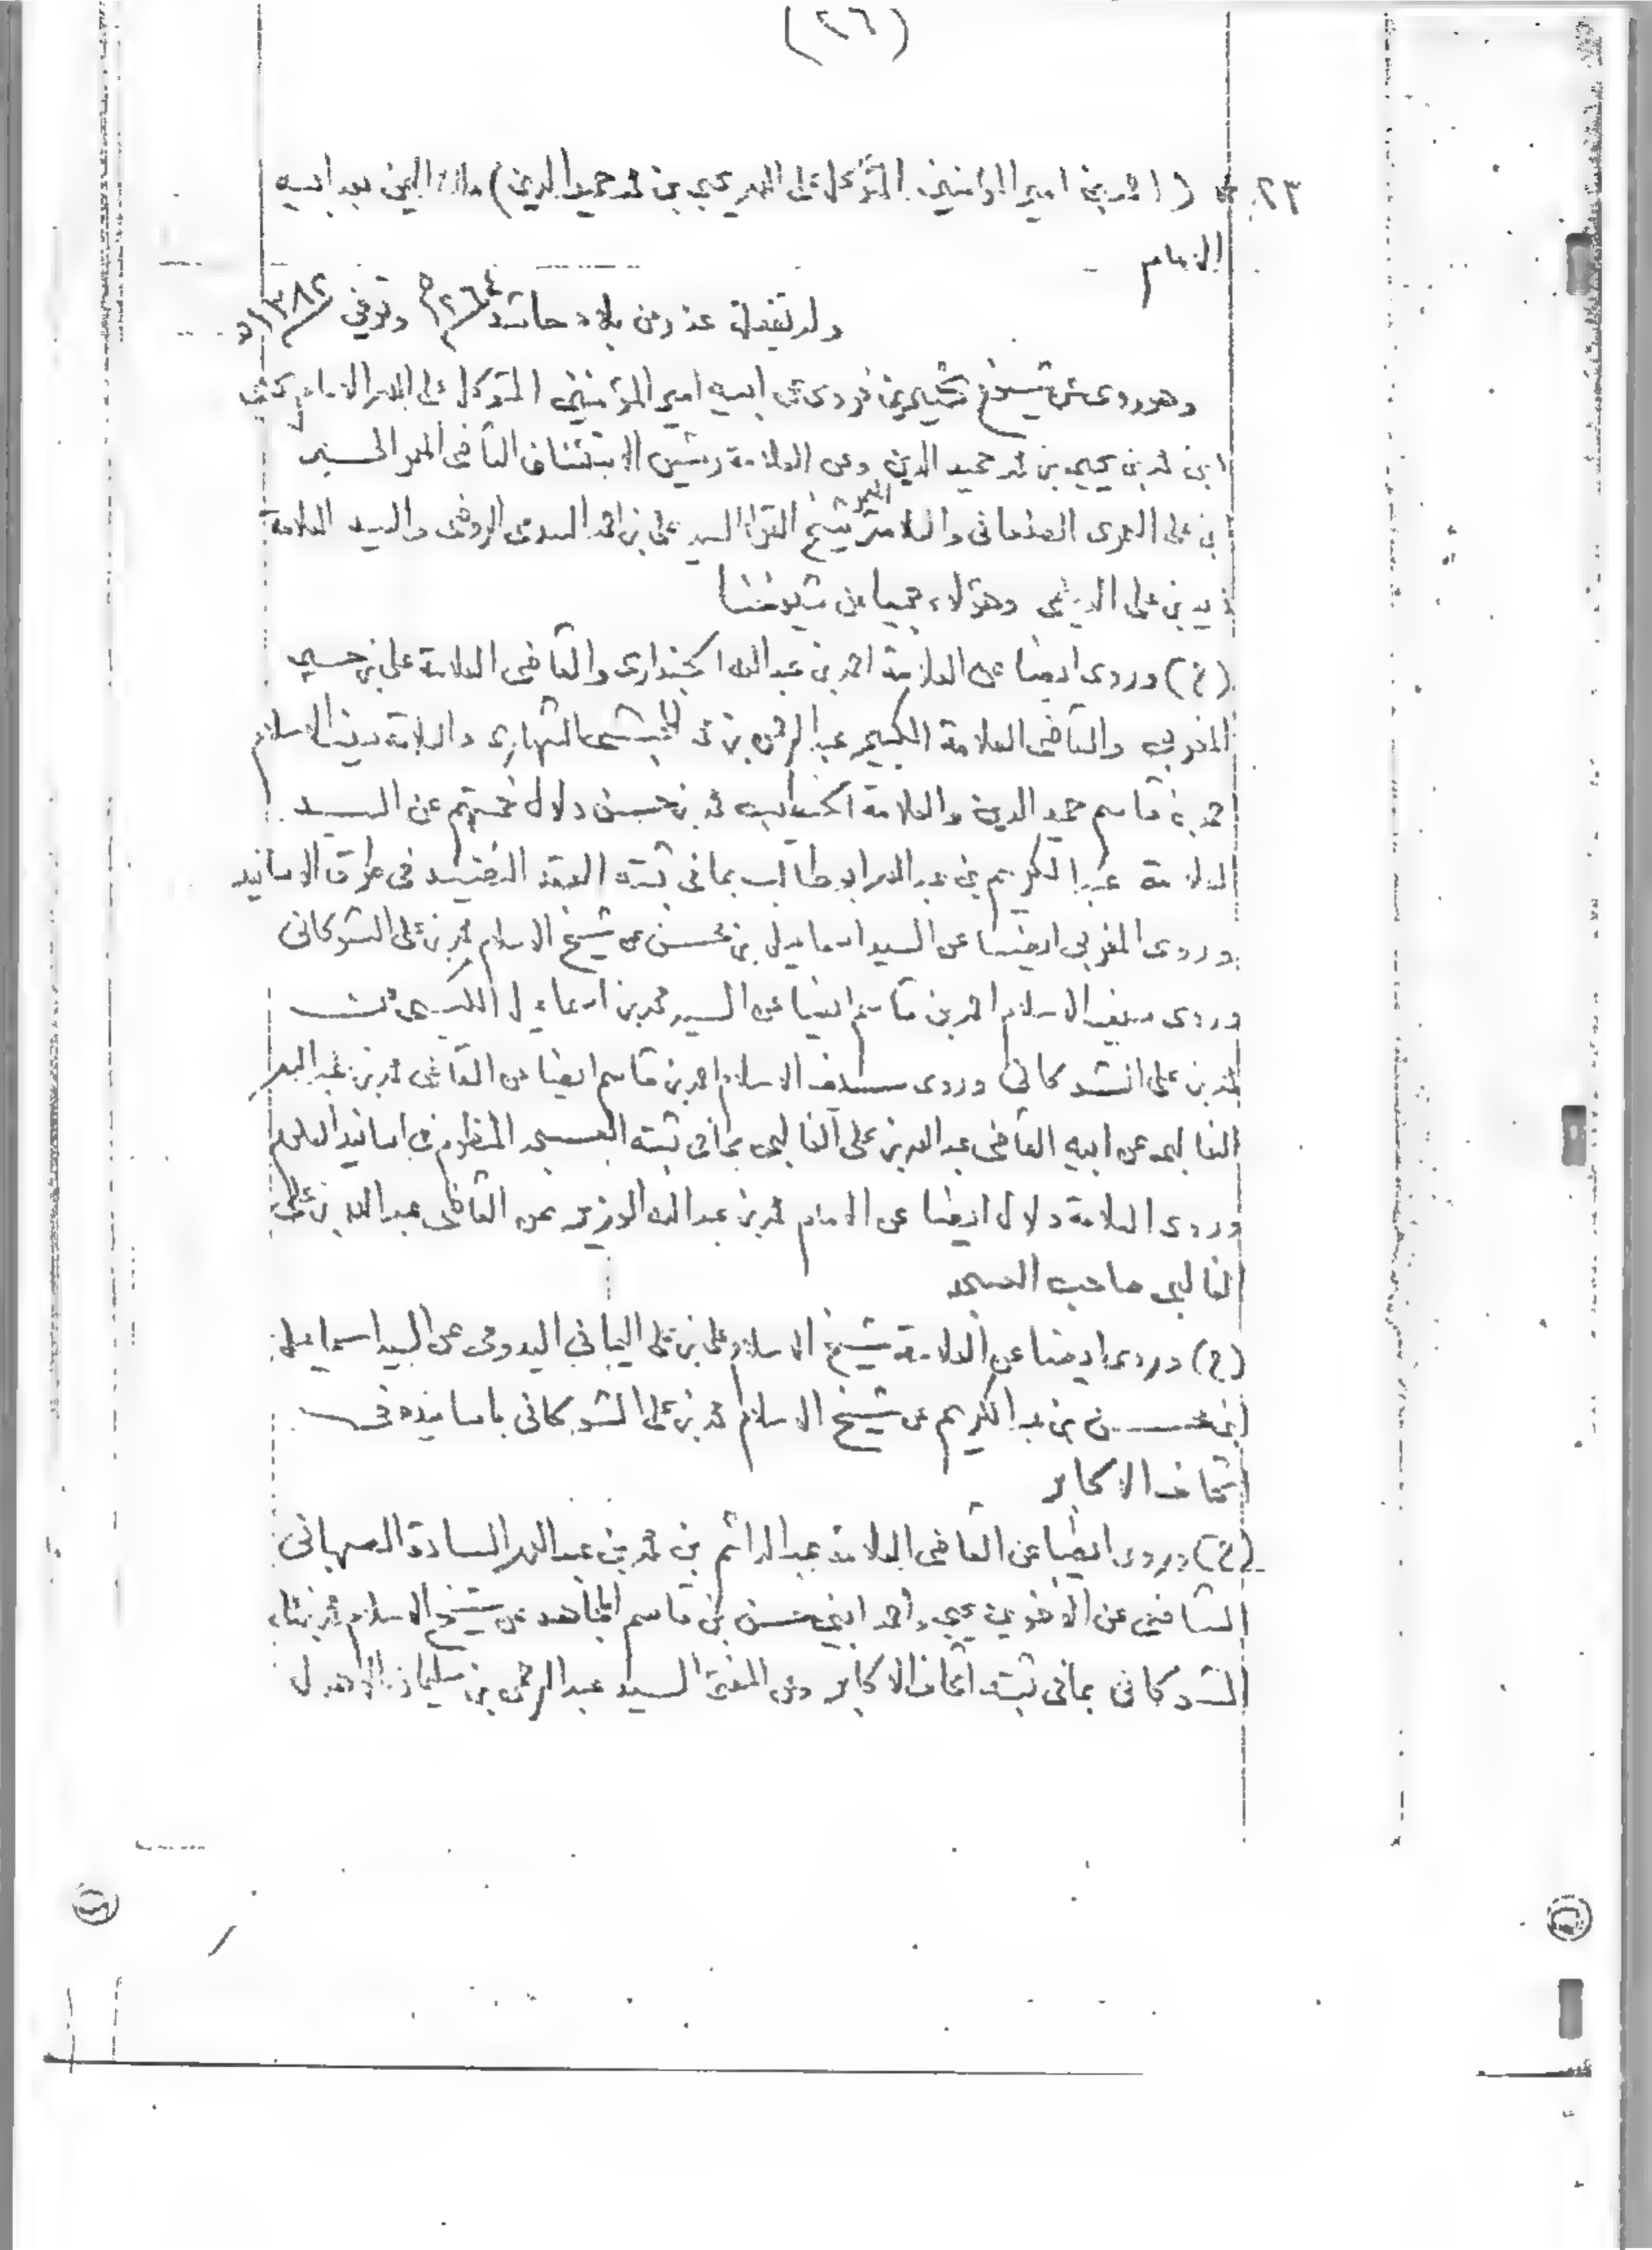 (٢٦)
٢٣ (احمد بن امير المؤمنين المتوكل على الله يحيى بن محمد حميد الدين) ملك اليمن بعد ابيه
الامام
ولد بقفلة عذر من بلاد حاشد وتوفي ١٣٨٢هـ
وهو روى عن شيوخ كثيرين فروى عن ابيه امير المؤمنين المتوكل على الله الامام يحيى
ابن محمد بن يحيى بن محمد حميد الدين وعن العلامة رئيس الاستئناف القاضي الحسين
بن على العمرى الصنعانى والعلامة شيخ القرا السيد على بن احمد السدمى الروضى والسيد العلامة
زيد بن على الديلمى وهؤلاء جميعا من شيوخنا
(ح) وروى ايضا عن العلامة احمد بن عبدالله الجندارى والقاضى العلامة على بن حسين
المغربى والقاضى العلامة الكبير عبدالرحمن بن محمد المحبشى الشهارى والعلامة سيف الاسلام
احمد بن قاسم حميد الدين والعلامة الخطيب محمد بن حسن دلال خمستهم عن السيد
العلامة عبدالكريم بن عبدالله ابو طالب بما فى ثبته العقد النضيد فى طرق الاسانيد
وروى المغربى ايضا عن السيد اسماعيل بن محسن عن شيخ الاسلام محمد بن على الشوكانى
وروى سيف الاسلام احمد بن قاسم ايضا عن السيد محمد بن اسماعيل الكبسى عن
محمد بن على الشوكانى وروى سيف الاسلام احمد بن قاسم ايضا عن القاضى محمد بن عبدالله
الغالبى عن ابيه القاضى عبدالله بن على الغالبى بما فى ثبته العسجد المنظوم فى اسانيد العلوم
وروى العلامة دلال ايضا عن الامام محمد بن عبدالله الوزير عن القاضى عبدالله بن على
الغالبى صاحب العسجد
(ح) وروى ايضا عن العلامة شيخ الاسلام على بن على اليمانى اليدومى عن السيد اسماعيل
ابن محسن بن عبدالكريم عن شيخ الاسلام محمد بن على الشوكانى باسانيده فى
اتحاف الاكابر
(ح) وروى ايضا عن القاضى العلامة عبدالدائم بن محمد بن عبدالله السادة الصهبانى
الشافعى عن الاخوين يحيى واحمد ابنى محسن بن قاسم المجاهد عن شيخ الاسلام محمد بن على
الشوكانى بما فى ثبته اتحاف الاكابر وعن المفتى السيد عبدالرحمن بن سليمان الاهدل